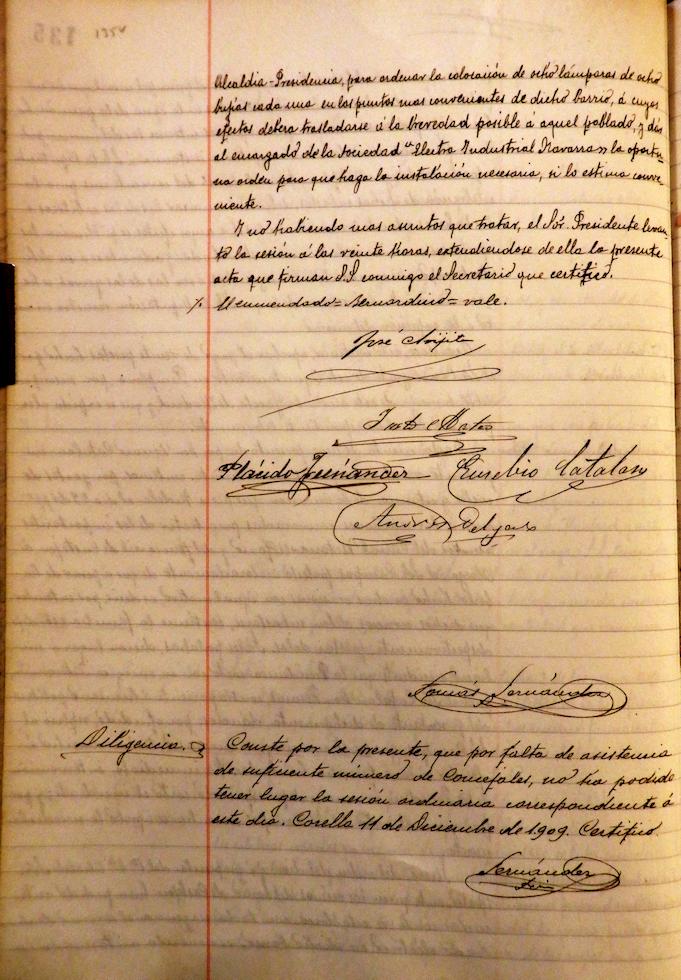 135
Alcaldia-Presidencia, para ordenar la colocación de ocho lámparas de ocho
bujías cada una en los puntos mas convenientes de dicho barrio, á cuyos
efectos debera trasladarse á la brevedad posible á aquel poblado, y dás
al encargado de la Sociedad "Electra Industrial Navarra" la oportu-
na orden para que haga la instalación necesaria, si lo estima conve-
niente.
Y no habiendo mas asuntos que tratar, el Sór. Presidente levan-
tó la sesión á las veinte horas, extendiendose de ella la presente
acta que firman S.S. conmigo el Secretario que certifico.
Enmendado = Bernardino = vale.
José
Justo Mateo
Plácido Fernández Eusebio Catalan
Andrés Delgado
Tomás Fernández
Diligencia.
Conste por la presente, que por falta de asistencia
de suficiente número de Concejales, no ha podido
tener lugar la sesión ordinaria correspondiente á
este dia. Corella 11 de Diciembre de 1.909. Certifico.
Fernández